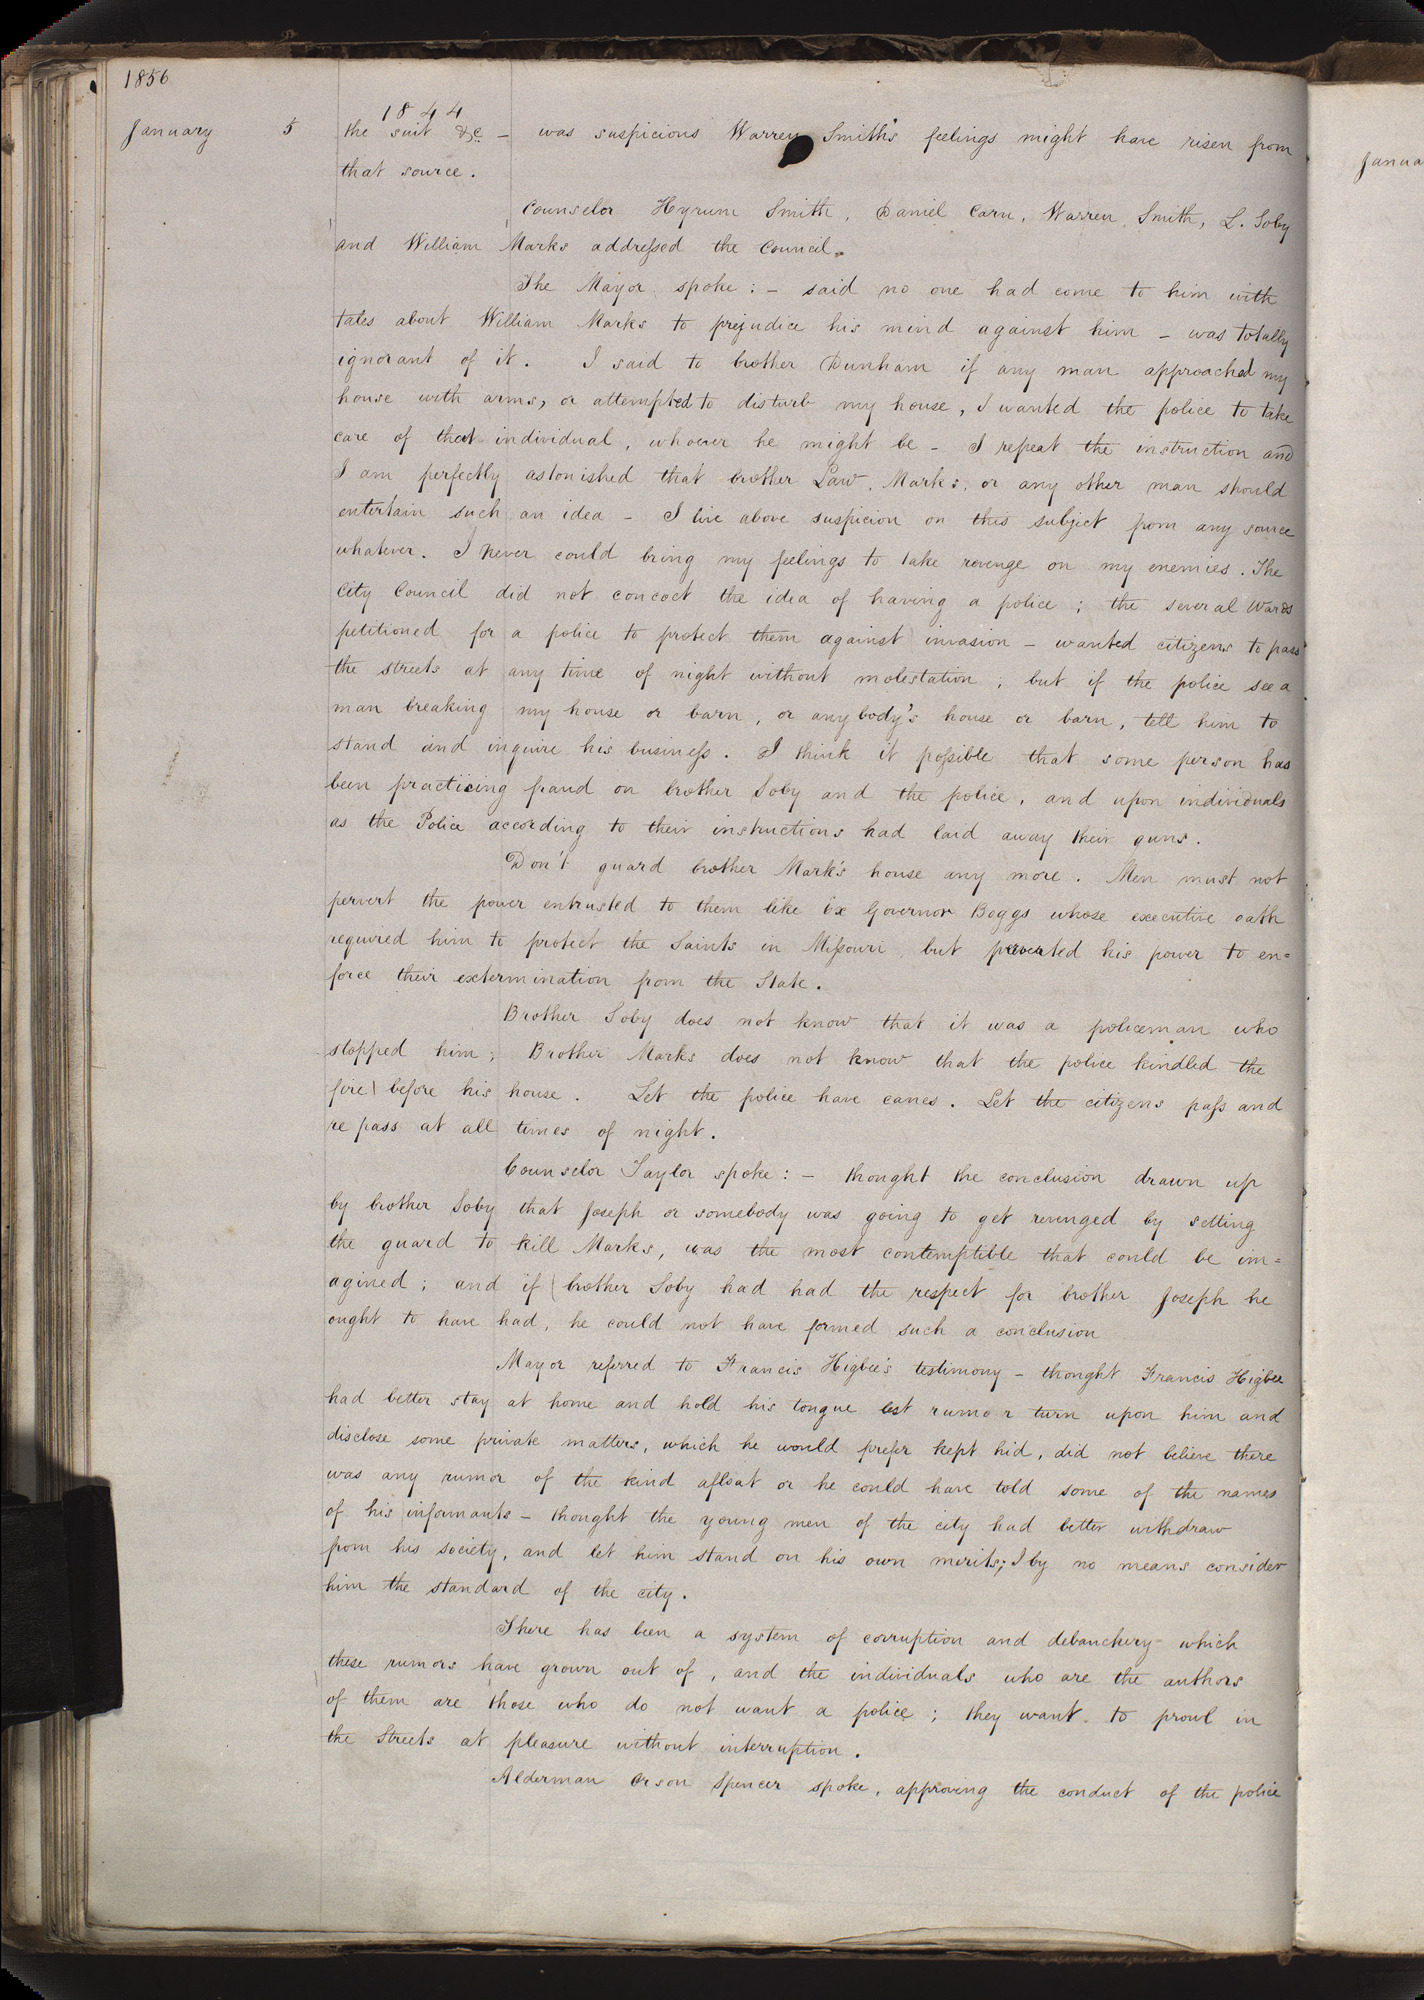 1856
1844
January 5 the suit &c — was suspicious Warren Smith's feelings might have risen from
that source.
Counselor Hyrum Smith, Daniel Carn, Warren Smith, L. Soby
and William Marks addressed the Council.
The Mayor spoke: — said no one had come to him with
tales about William Marks to prejudice his mind against him — was totally
ignorant of it. I said to brother Dunham if any man approached my
house with arms, or attempted to disturb my house, I wanted the police to take
care of that individual, whoever he might be — I repeat the instruction and
I am perfectly astonished that brother Law, Marks, or any other man should
entertain such an idea — I live above suspicion on this subject from any source
whatever. I never could bring my feelings to take revenge on my enemies. The
City Council did not concoct the idea of having a police; the several Wards
petitioned for a police to protect them against invasion — wanted citizens to pass
the streets at any time of night without molestation; but if the police see a
man breaking my house or barn, or anybody's house or barn, tell him to
stand and inquire his business. I think it possible that some person has
been practicing fraud on brother Soby and the police, and upon individuals
as the Police according to their instructions had laid away their guns.
Don't guard brother Mark's house any more. Men must not
pervert the power entrusted to them like Ex Governor Boggs whose executive oath
required him to protect the Saints in Missouri, but perverted his power to en=
force their extermination from the State.
Brother Soby does not know that it was a policeman who
stopped him; Brother Marks does not know that the police kindled the
fire before his house. Let the police have canes. Let the citizens pass and
re pass at all times of night.
Counselor Taylor spoke: — thought the conclusion drawn up
by brother Soby that Joseph or somebody was going to get revenged by setting
the guard to kill Marks, was the most contemptible that could be im=
agined; and if brother Soby had had the respect for brother Joseph he
ought to have had, he could not have formed such a conclusion
Mayor referred to Francis Higbee's testimony — thought Francis Higbee
had better stay at home and hold his tongue lest rumor turn upon him and
disclose some private matters, which he would prefer kept hid, did not believe there
was any rumor of the kind afloat or he could have told some of the names
of his informants — thought the young men of the city had better withdraw
from his society, and let him stand on his own merits; I by no means consider
him the standard of the city.
There has been a system of corruption and debauchery which
these rumors have grown out of, and the individuals who are the authors
of them are those who do not want a police; they want to prowl in
the Streets at pleasure without interruption.
Alderman Orson Spencer spoke, approving the conduct of the police